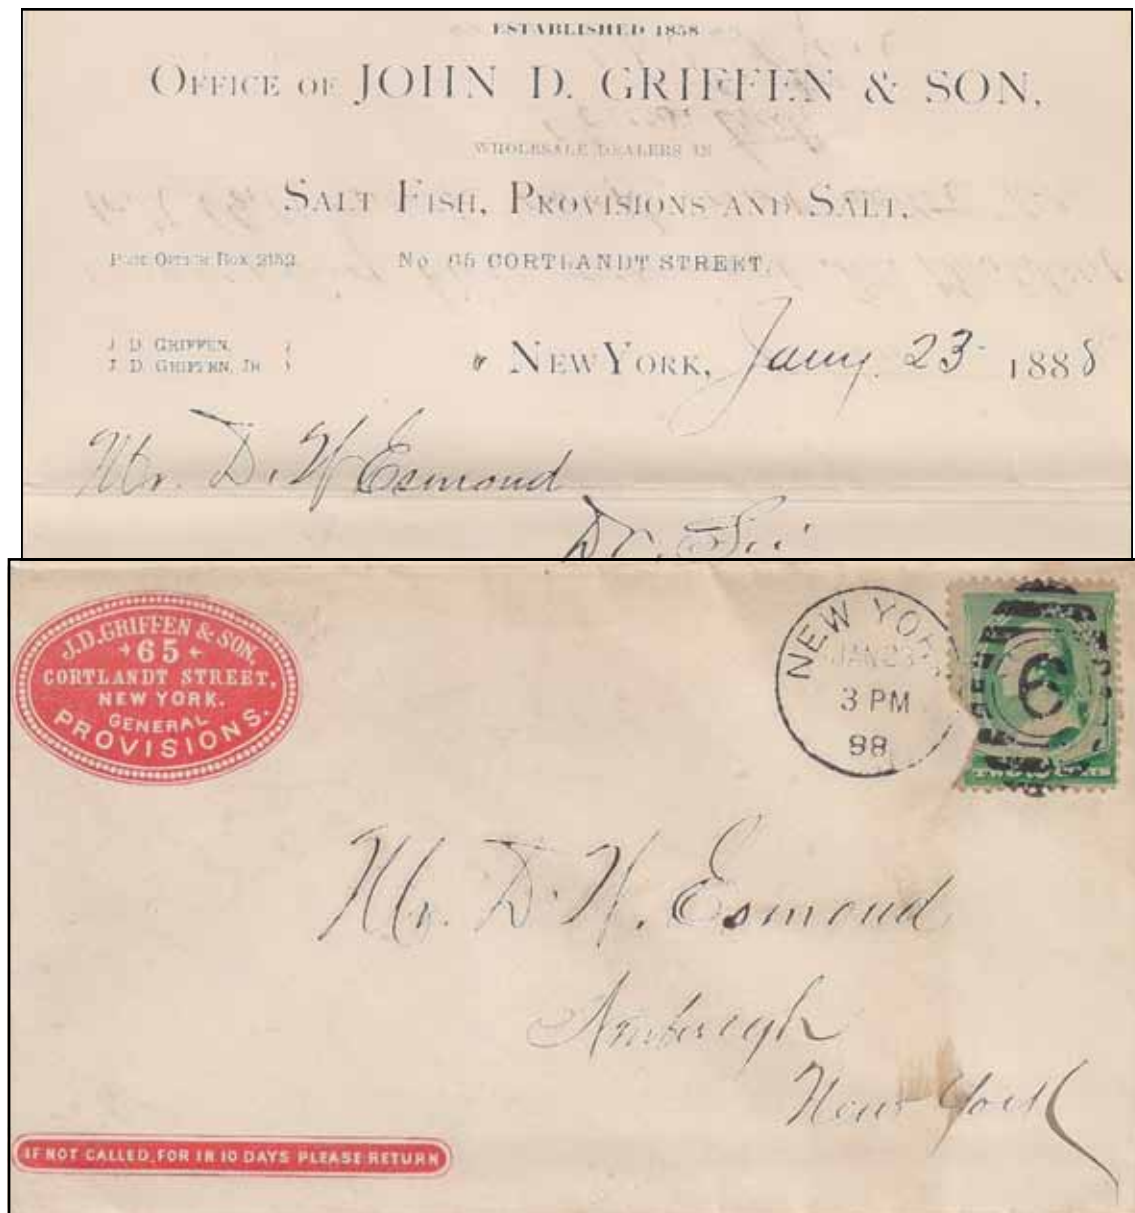 ESTABLISHED 1858
OFFICE OF JOHN D. GRIFFEN & SON,
WHOLESALE DEALERS IN
SALT FISH, PROVISIONS AND SALT,
POST OFFICE BOX 2152. No 65 CORTLANDT STREET,
J. D. GRIFFEN,
J. D. GRIFFEN, JR
NEW YORK, Jany. 23 1888
Mr. D. W Esmond
Dr. Sir
J.D. GRIFFEN & SON,
65
CORTLANDT STREET,
NEW YORK.
GENERAL
PROVISIONS.
NEW YOR
JAN 23
3 PM
88
6
Mr. D. W. Esmond
New York
IF NOT CALLED FOR IN 10 DAYS PLEASE RETURN